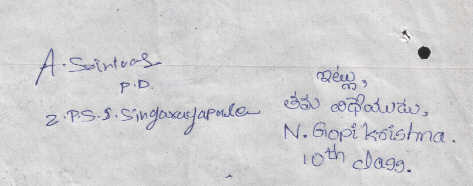 A. Srinivas
P.D.
Z.P.S.S. Singarajupale
ఇట్లు,
తమ విధేయుడు,
N. Gopi Krishna.
10th class.